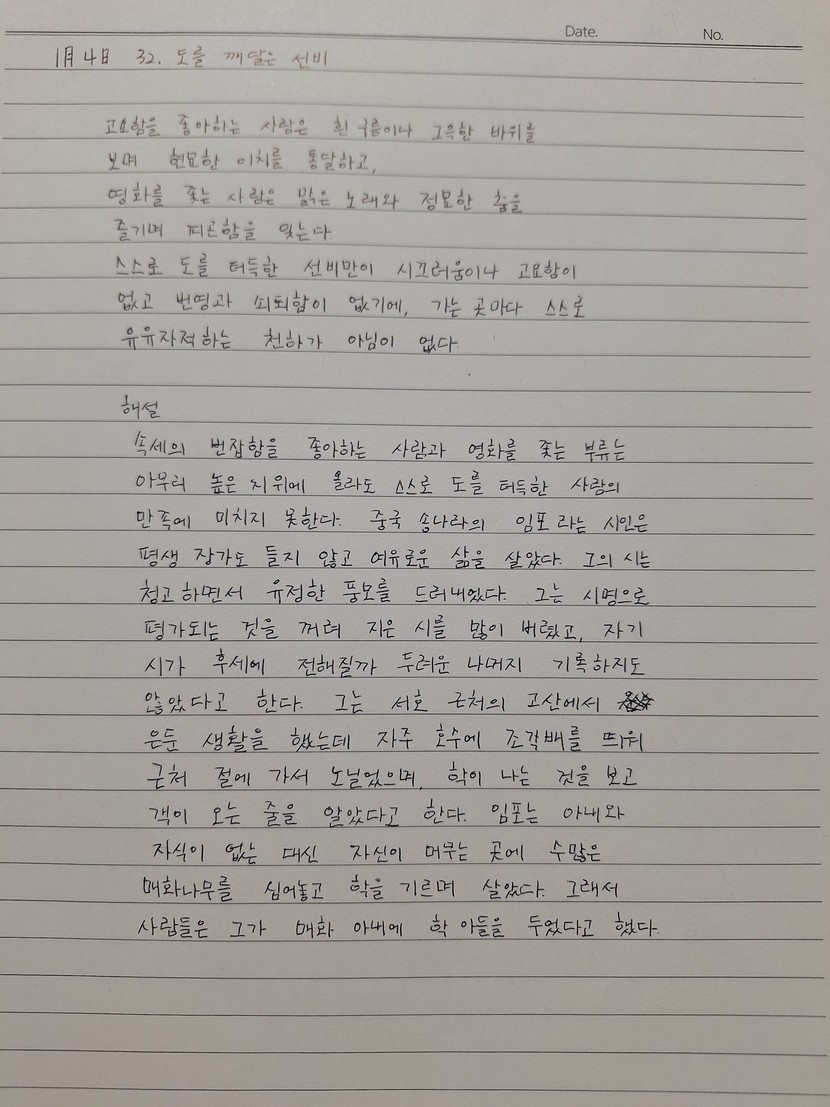 Date.
No.
1月 4日 32. 도를 깨달은 선비
고요함을 좋아하는 사람은 흰 구름이나 그윽한 바위를
보며 현묘한 이치를 통달하고,
영화를 좇는 사람은 맑은 노래와 정묘한 춤을
즐기며 피곤함을 잊는다.
스스로 도를 터득한 선비만이 시끄러움이나 고요함이
없고 번영과 쇠퇴함이 없기에, 가는 곳마다 스스로
유유자적하는 천하가 아님이 없다.
해설
속세의 번잡함을 좋아하는 사람과 영화를 좇는 부류는
아무리 높은 지위에 올라도 스스로 도를 터득한 사람의
만족에 미치지 못한다. 중국 송나라의 임포라는 시인은
평생 장가도 들지 않고 여유로운 삶을 살았다. 그의 시는
청고하면서 유정한 풍모를 드러내었다. 그는 시명으로
평가되는 것을 꺼려 지은 시를 많이 버렸고, 자기
시가 후세에 전해질까 두려운 나머지 기록하지도
않았다고 한다. 그는 서호 근처의 고산에서
은둔 생활을 했는데 자주 호수에 조각배를 띄워
근처 절에 가서 노닐었으며, 학이 나는 것을 보고
객이 오는 줄을 알았다고 한다. 임포는 아내와
자식이 없는 대신 자신이 머무는 곳에 수많은
매화나무를 심어놓고 학을 기르며 살았다. 그래서
사람들은 그가 매화 아내에 학 아들을 두었다고 했다.